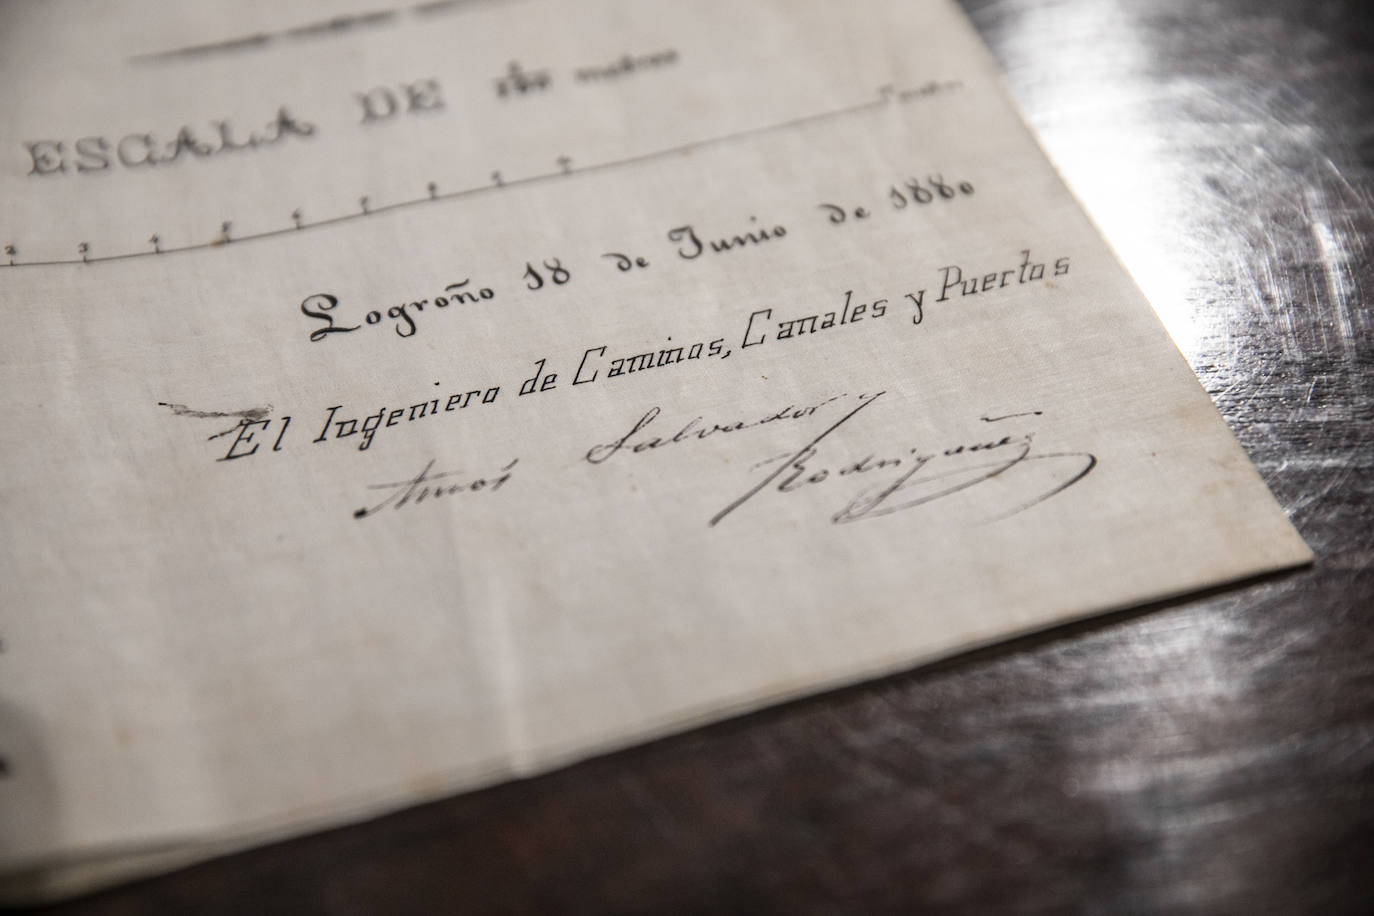 ESCALA DE metros
2 3 4 5 6 7 8 9
Logroño 18 de Junio de 1880
El Ingeniero de Caminos, Canales y Puertos
Amós Salvador y
Rodrigáñez